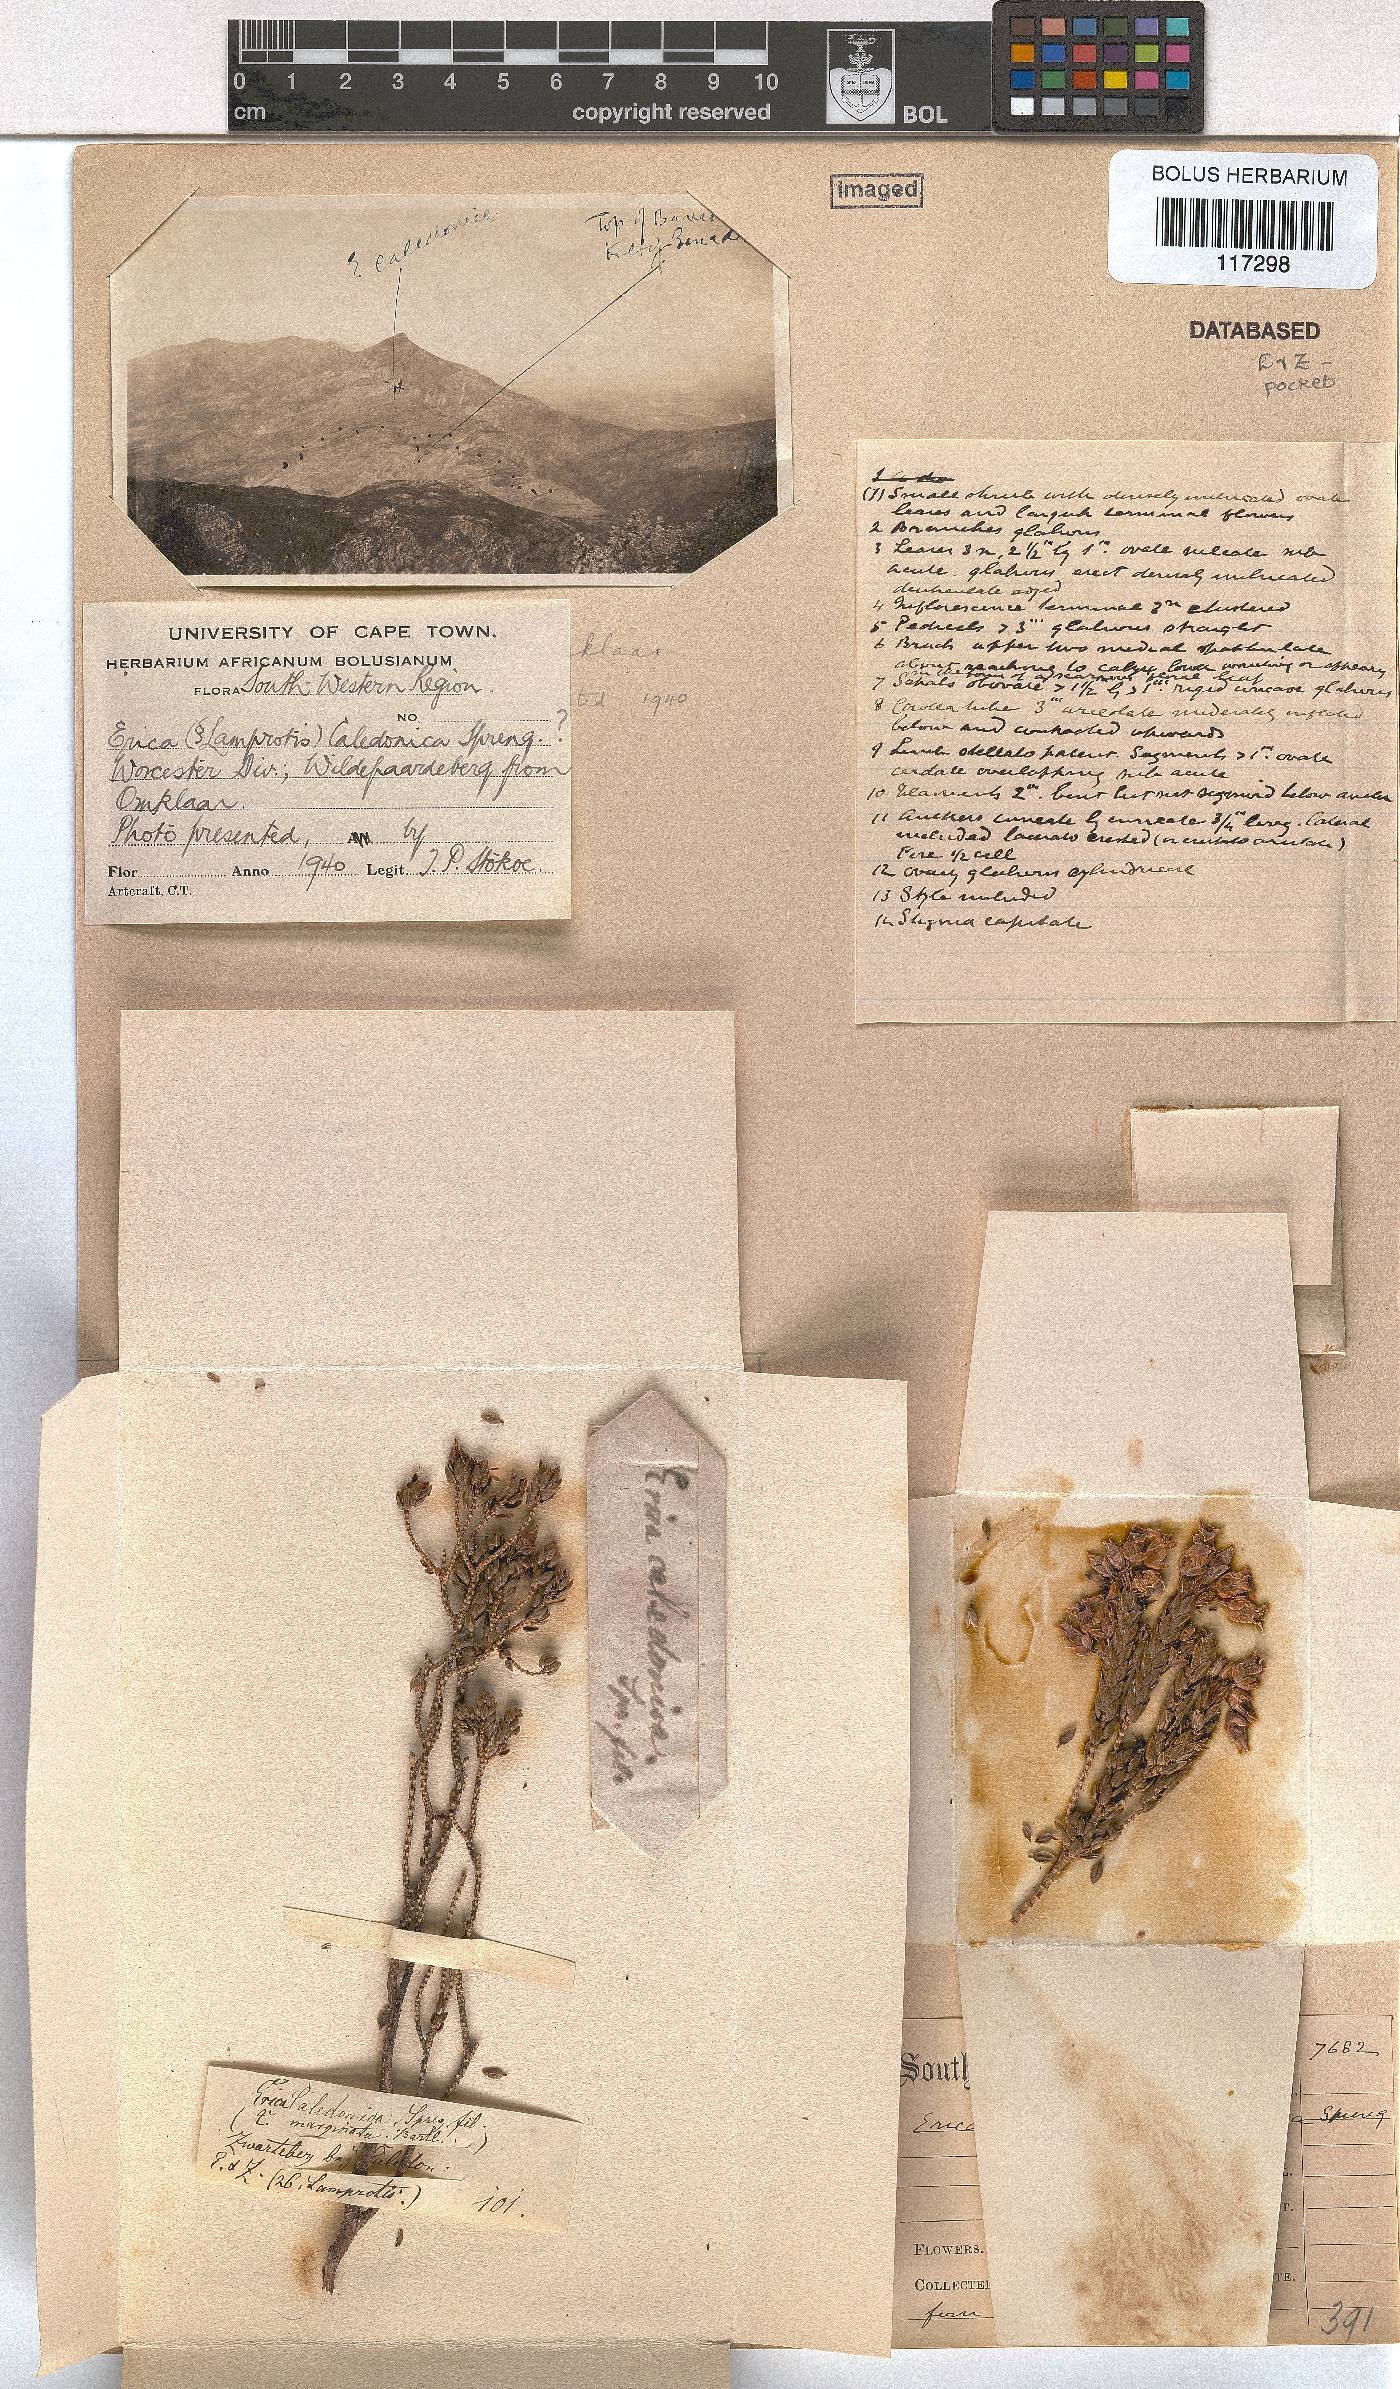 0 1 2 3 4 5 6 7 8 9 10
cm copyright reserved BOL
imaged
BOLUS HERBARIUM
117298
DATABASED
E & Z -
pocket
E caledonica
Top of
UNIVERSITY OF CAPE TOWN.
HERBARIUM AFRICANUM BOLUSIANUM
FLORA South-Western Region.
NO.
Erica (§ Lamprotis) Caledonica Spreng. ?
Worcester Div., Wildepaardeberg from
Omklaar.
Photo presented, by
Flor Anno 1940 Legit J. P. Stokoe.
Artcraft, C.T.
klaar
ted 1940
(1) Small shrub with densely imbricated ovate
leaves and largish terminal flowers
2 Branches glabrous
3 Leaves 3 n, 2 1/2''' by 1''' ovate sulcate sub
acute glabrous erect densely imbricated
denticulate edged
4 Inflorescence terminal 3 n clustered
5 Pedicels > 3''' glabrous straight
6 Bracts upper two medial spathulate
about reaching to calyx lower wanting or appearing
in the form of a scarious floral leaf
7 Sepals obovate > 1 1/2 by > 1''' rigid concave glabrous
8 Corolla tube 3''' urceolate moderately inflated
below and contracted upwards
9 Limb stellato patent. Segments > 1''' ovate
cordate overlapping sub acute
10 Filaments 2''' bent but not sigmoid below anther
11 Anthers cuneate by cuneate 3/4''' long. lateral
included lanceato crested (or cristato aristate)
Pore 1/2 cell
12 Ovary glabrous cylindrical
13 Style included
14 Stigma capitate
Erica caledonica.
Spr. fil.
Erica Caledonica, Spreg. fil.
(E. marginata. Bartl.)
Zwarteberg bij Caledon.
E. & Z. (26, Lamprotis.) 101.
South
7682
Erica
Spreng
FLOWERS.
COLLECTED
TE.
from
391